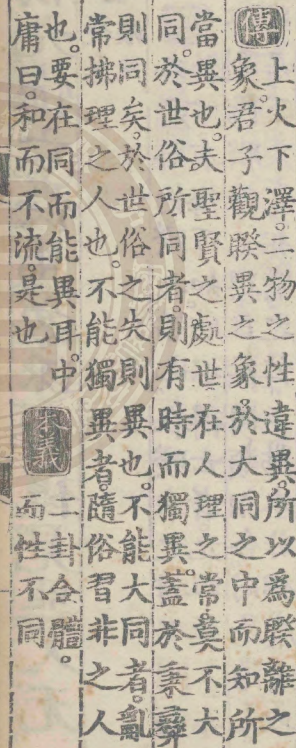 傳
上火下澤。二物之性違異。所以爲睽離之
象。君子觀睽異之象。於大同之中而知所
當異也。夫聖賢之處世在人理之常莫不大
同。於世俗所同者。則有時而獨異。蓋於秉彝
則同矣。於世俗之失則異也。不能大同者。亂
常拂理之人也。不能獨異者。隨俗習非之人
也。要在同而能異耳。中
庸曰。和而不流。是也
本義
二卦合體。
而性不同